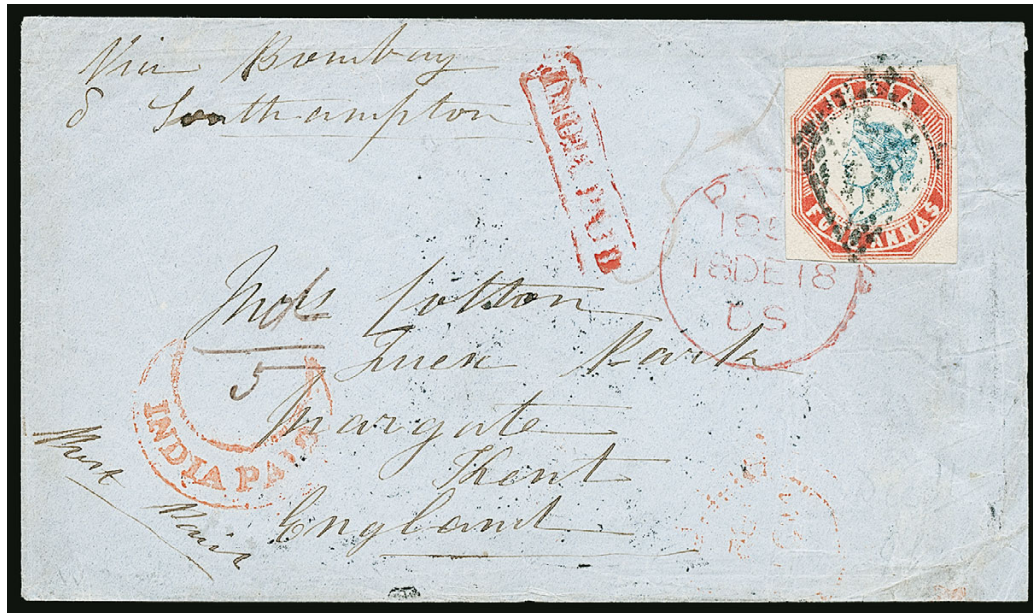 Via Bombay
& Southampton
INDIA PAID
INDIA
FOUR ANNAS
PAID
18DE18
Cotton
Park
Margate
Kent
England
5
INDIA PAID
Post
Paid